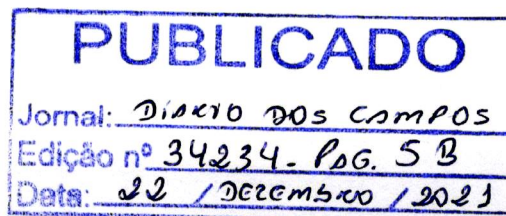 PUBLICADO
Jornal: DIÁRIO DOS CAMPOS
Edição nº 34234 - PÁG. 5 B
Data: 22 / DEZEMBRO / 2021